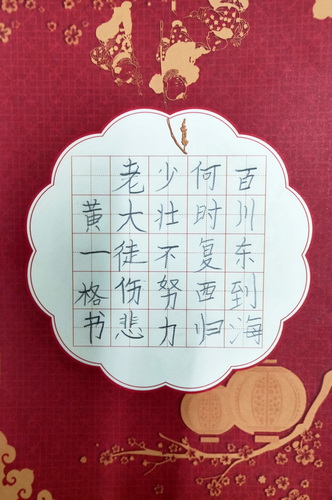 百川东到海
何时复西归
少壮不努力
老大徒伤悲
黄一格书